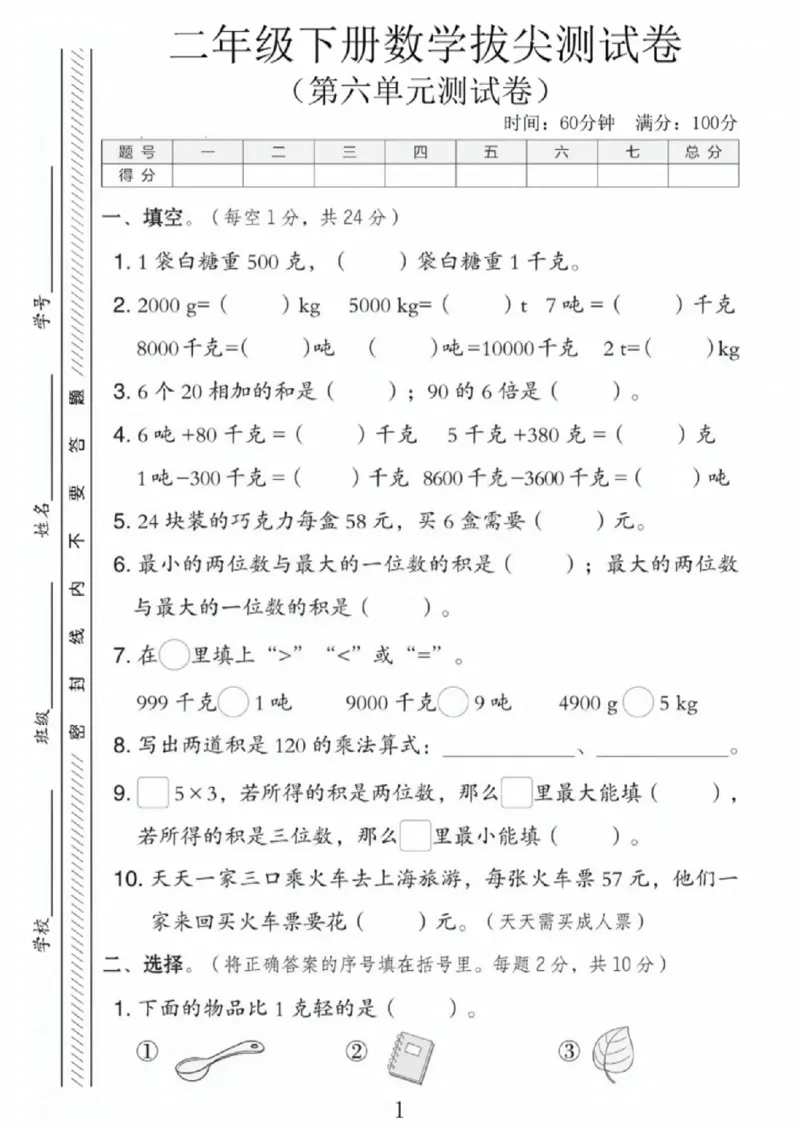 二年级下册数学拔尖测试卷
（第六单元测试卷）
时间：60分钟 满分：100分
题号 一 二 三 四 五 六 七 总分
得分
一、填空。（每空1分，共24分）
1. 1袋白糖重500克，（ ）袋白糖重1千克。
2. 2000 g=（ ）kg 5000 kg=（ ）t 7吨=（ ）千克
8000千克=( )吨 ( )吨=10000千克 2 t=( )kg
3. 6个20相加的和是（ ）；90的6倍是（ ）。
4. 6吨+80千克=（ ）千克 5千克+380克=（ ）克
1吨-300千克=（ ）千克 8600千克-3600千克=（ ）吨
5. 24块装的巧克力每盒58元，买6盒需要（ ）元。
6. 最小的两位数与最大的一位数的积是（ ）；最大的两位数
与最大的一位数的积是（ ）。
7. 在○里填上“>”“<”或“=”。
999千克○1吨 9000千克○9吨 4900 g○5 kg
8. 写出两道积是120的乘法算式：____________、____________。
9. □5×3，若所得的积是两位数，那么□里最大能填（ ），
若所得的积是三位数，那么□里最小能填（ ）。
10. 天天一家三口乘火车去上海旅游，每张火车票57元，他们一
家来回买火车票要花（ ）元。（天天需买成人票）
二、选择。（将正确答案的序号填在括号里。每题2分，共10分）
1. 下面的物品比1克轻的是（ ）。
① ② ③
1
学校 班级 姓名 学号
密 封 线 内 不 要 答 题